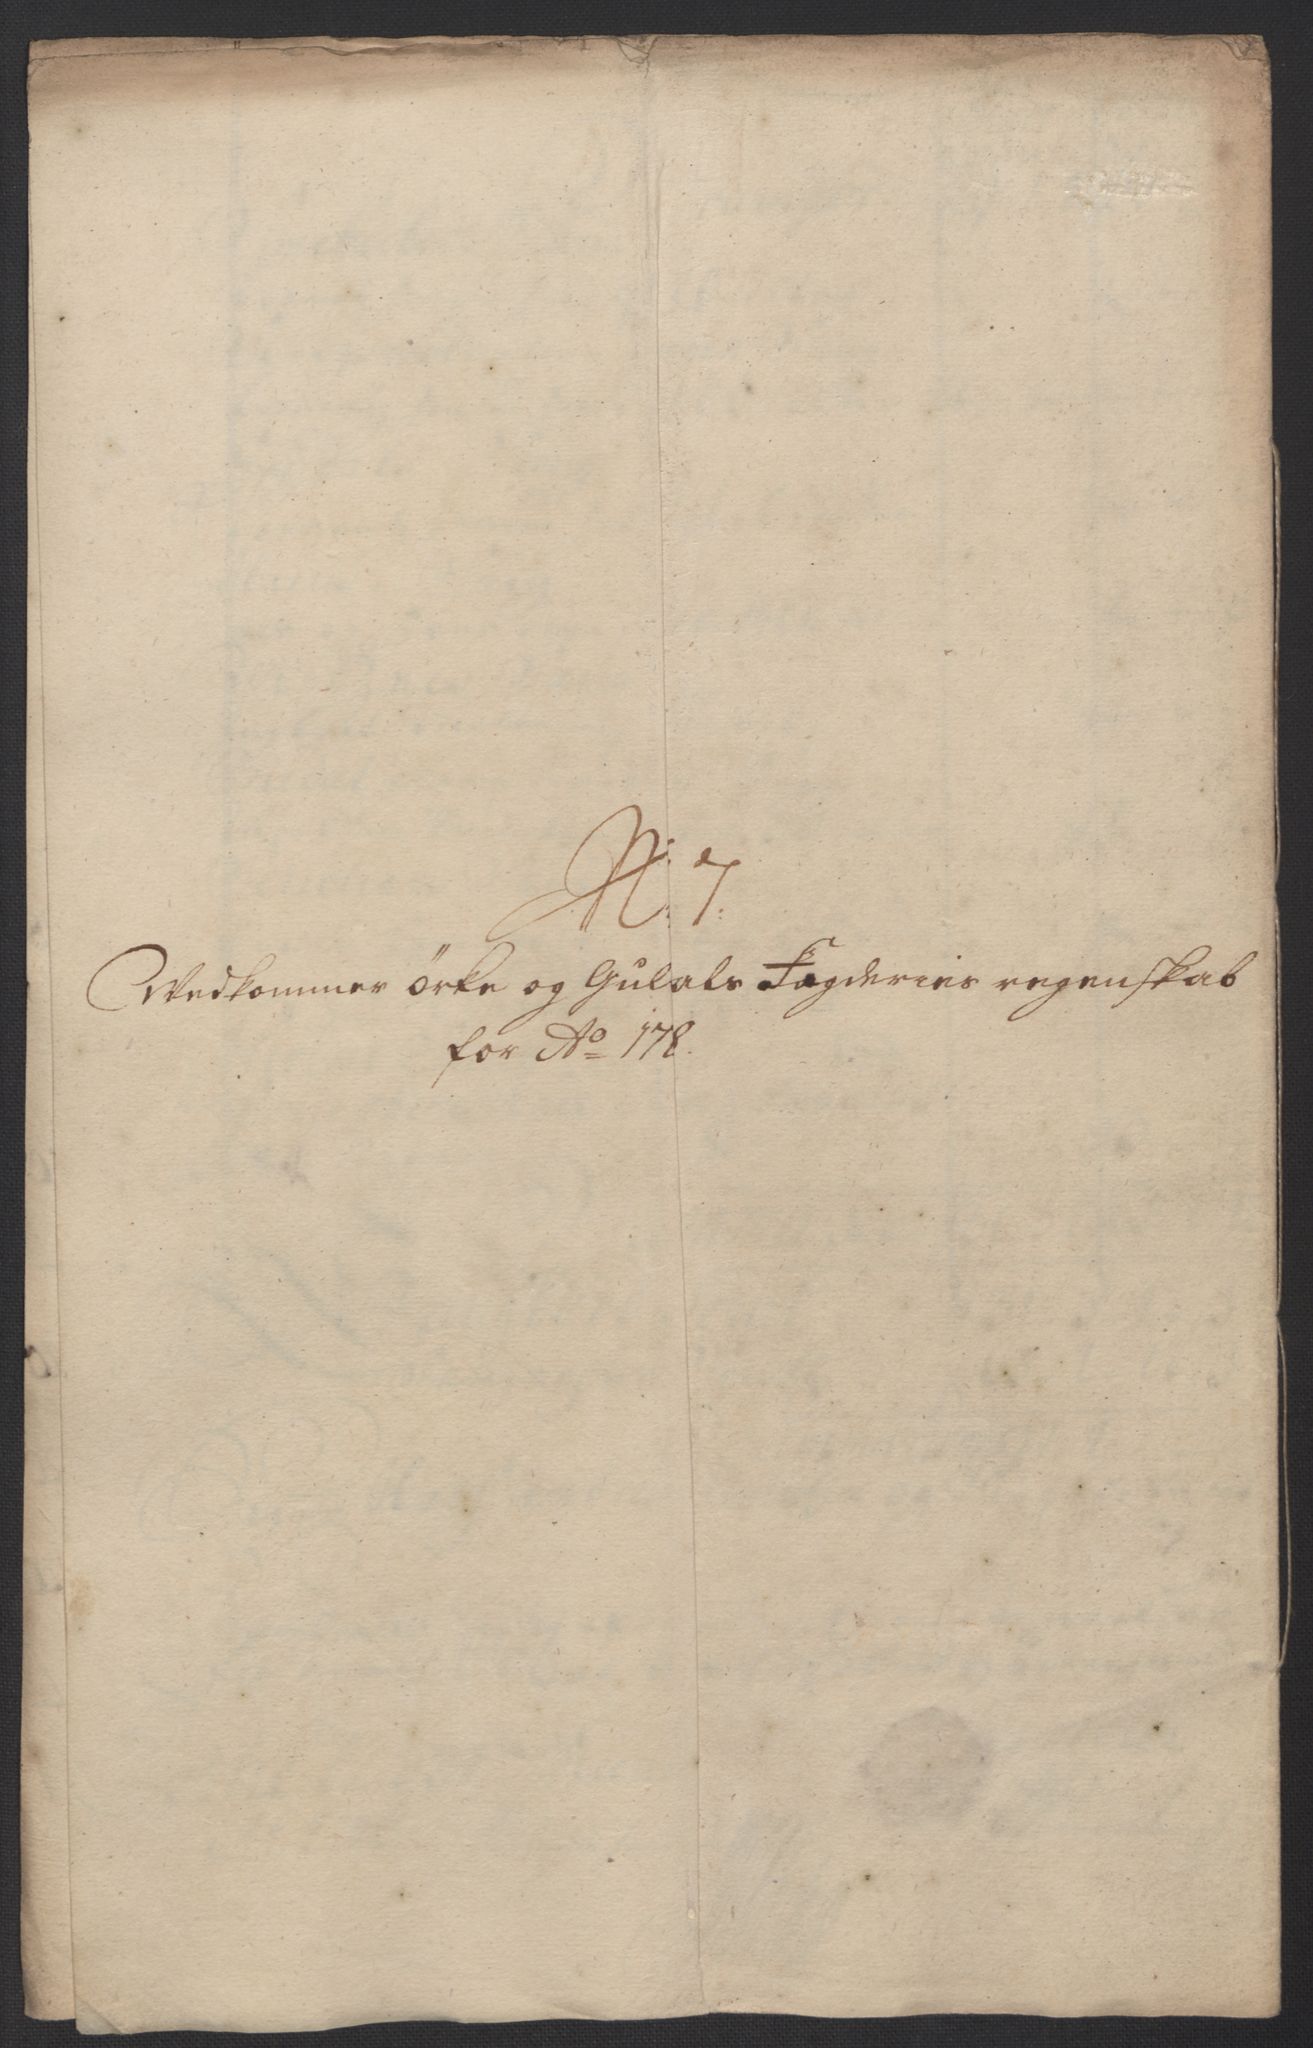 N: 7.
Vedkommer örke og Gulals Fogderies regenskab
for Ao 178.